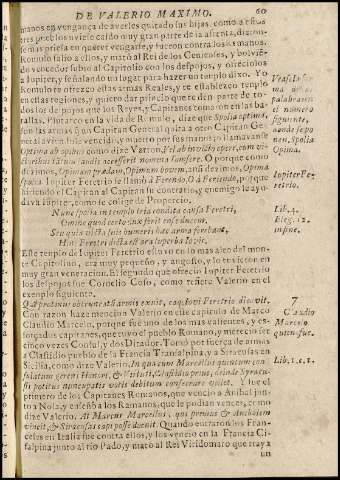 DE VALERIO MAXIMO. 60
manos en vengança de averles quitado sus hijas, como a
res pues los
mas priesa en querer vengarse, y fueron contra los Romanos.
Romulo salio a ellos, y matò al Rei de los Cenenses, y bolvien-
do vencedor subio al Capitolio con los despojos, y ofreciolos
a Iupiter, y señalando un lugar para hazer un templo dixo. Yo
Romulo te ofrezco estas armas Reales, y te establezco templo
en estas regiones, y quiero dar principio que te den parte de to-
dos los despojos que los Reyes, y Capitanes tomaren en las ba-
tallas. Plutarco en la vida de Romulo, dize que Spolia optima,
son las armas que un Capitan General quita a otro Capitan Ge-
neral aviendole vencido, y muerto por sus manos, y llamavanse
Optima ab opibus como dize Varron.
Y porque como
dezimos, Opimam prædam, Opimum bovem, assi dezimos, Opima
spolia. Iupiter Feretrio se llamò à Ferendo. O à Feriendo, porque
hiriendo el Capitan al Capitan su contrario, y enemigo le ayu-
dava Iupiter, como se colige de Propercio.
Nunc spolia in templo tria condita causa Feretri,
Omine quod certo dux ferit ense ducem.
Seu quia victa suis humeris hæc arma ferebant,
Hinc Feretri dicta est ara superba Iovis.
Este templo de Iupiter Feretrio estuvo en lo mas alto del mon-
te Capitolino, era muy pequeño, y angosto, y lo tuvieron en
muy gran veneracion. El segundo que ofrecio Iupiter Feretrio
los despojos fue Cornelio Coso, como refiere Valerio en el
exemplo siguiente.

Con razon haze mencion Valerio en este capitulo de Marco
Claudio Marcelo, porque fue uno de los mas valientes, y es-
forçados capitanes, que tuvo el pueblo Romano, y merecio ser
cinco vezes Consul, y dos Ditador. Tomò por fuerça de armas
a Clasidio pueblo de la Francia Transalpina, y a Siracusas en
Sicilia, como dize Valerio. In qua cum Marcellus quintum con-
sulatum gerens Honori, & Virtuti, Clastidio prius, deinde Syracu-
sis potitus nuncupatis votis debitum consecrare quiset. Y fue el
primero de los Capitanes Romanos, que vencio a Anibal jun-
to a Nola, y enseñò a los Romanos, que le podian vencer, como
dize Valerio. At Marcus Marcellus, qui primus & Annibalem
vinci, & Syracusas capi posse docuit. Quando entraron los Fran-
ceses en Italia fue contra ellos, y los vencio en la Francia Ci-
salpina junto al rio Pado, y matò al Rei Viridomaro que traya
un
Iupiter Fe-
retrio.
Lib. 4.
Eleg. 12.
in fine.
7
Claudio
Marcelo
quien fue.
Lib. 1. c. 1.